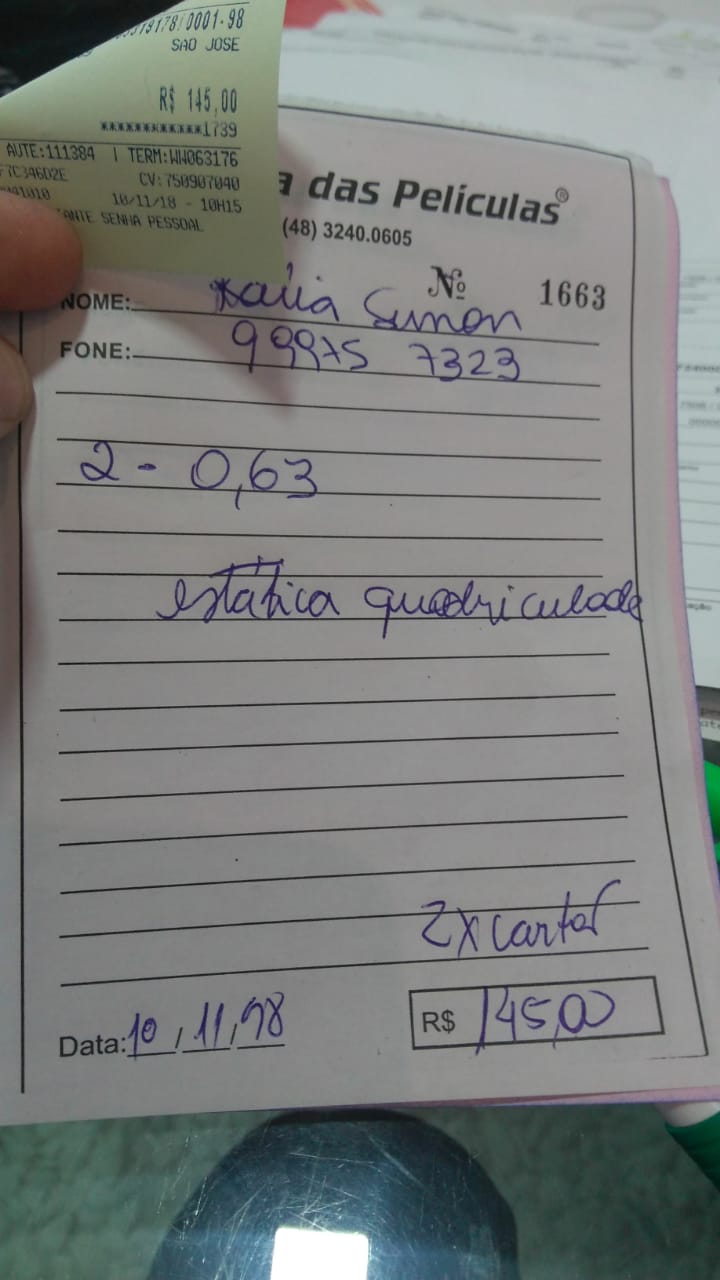 19178/0001-98
SAO JOSE
R$ 145,00
************1739
AUTE:111384 | TERM:WW063176
CV:750907040
10/11/18 - 10H15
ANTE SENHA PESSOAL
a das Películas®
(48) 3240.0605
Nº 1663
NOME: Simon
FONE: 99975 7323
2 - 0,63
estática quadriculada
2x cartão
Data: 10, 11, 18 R$ 145,00